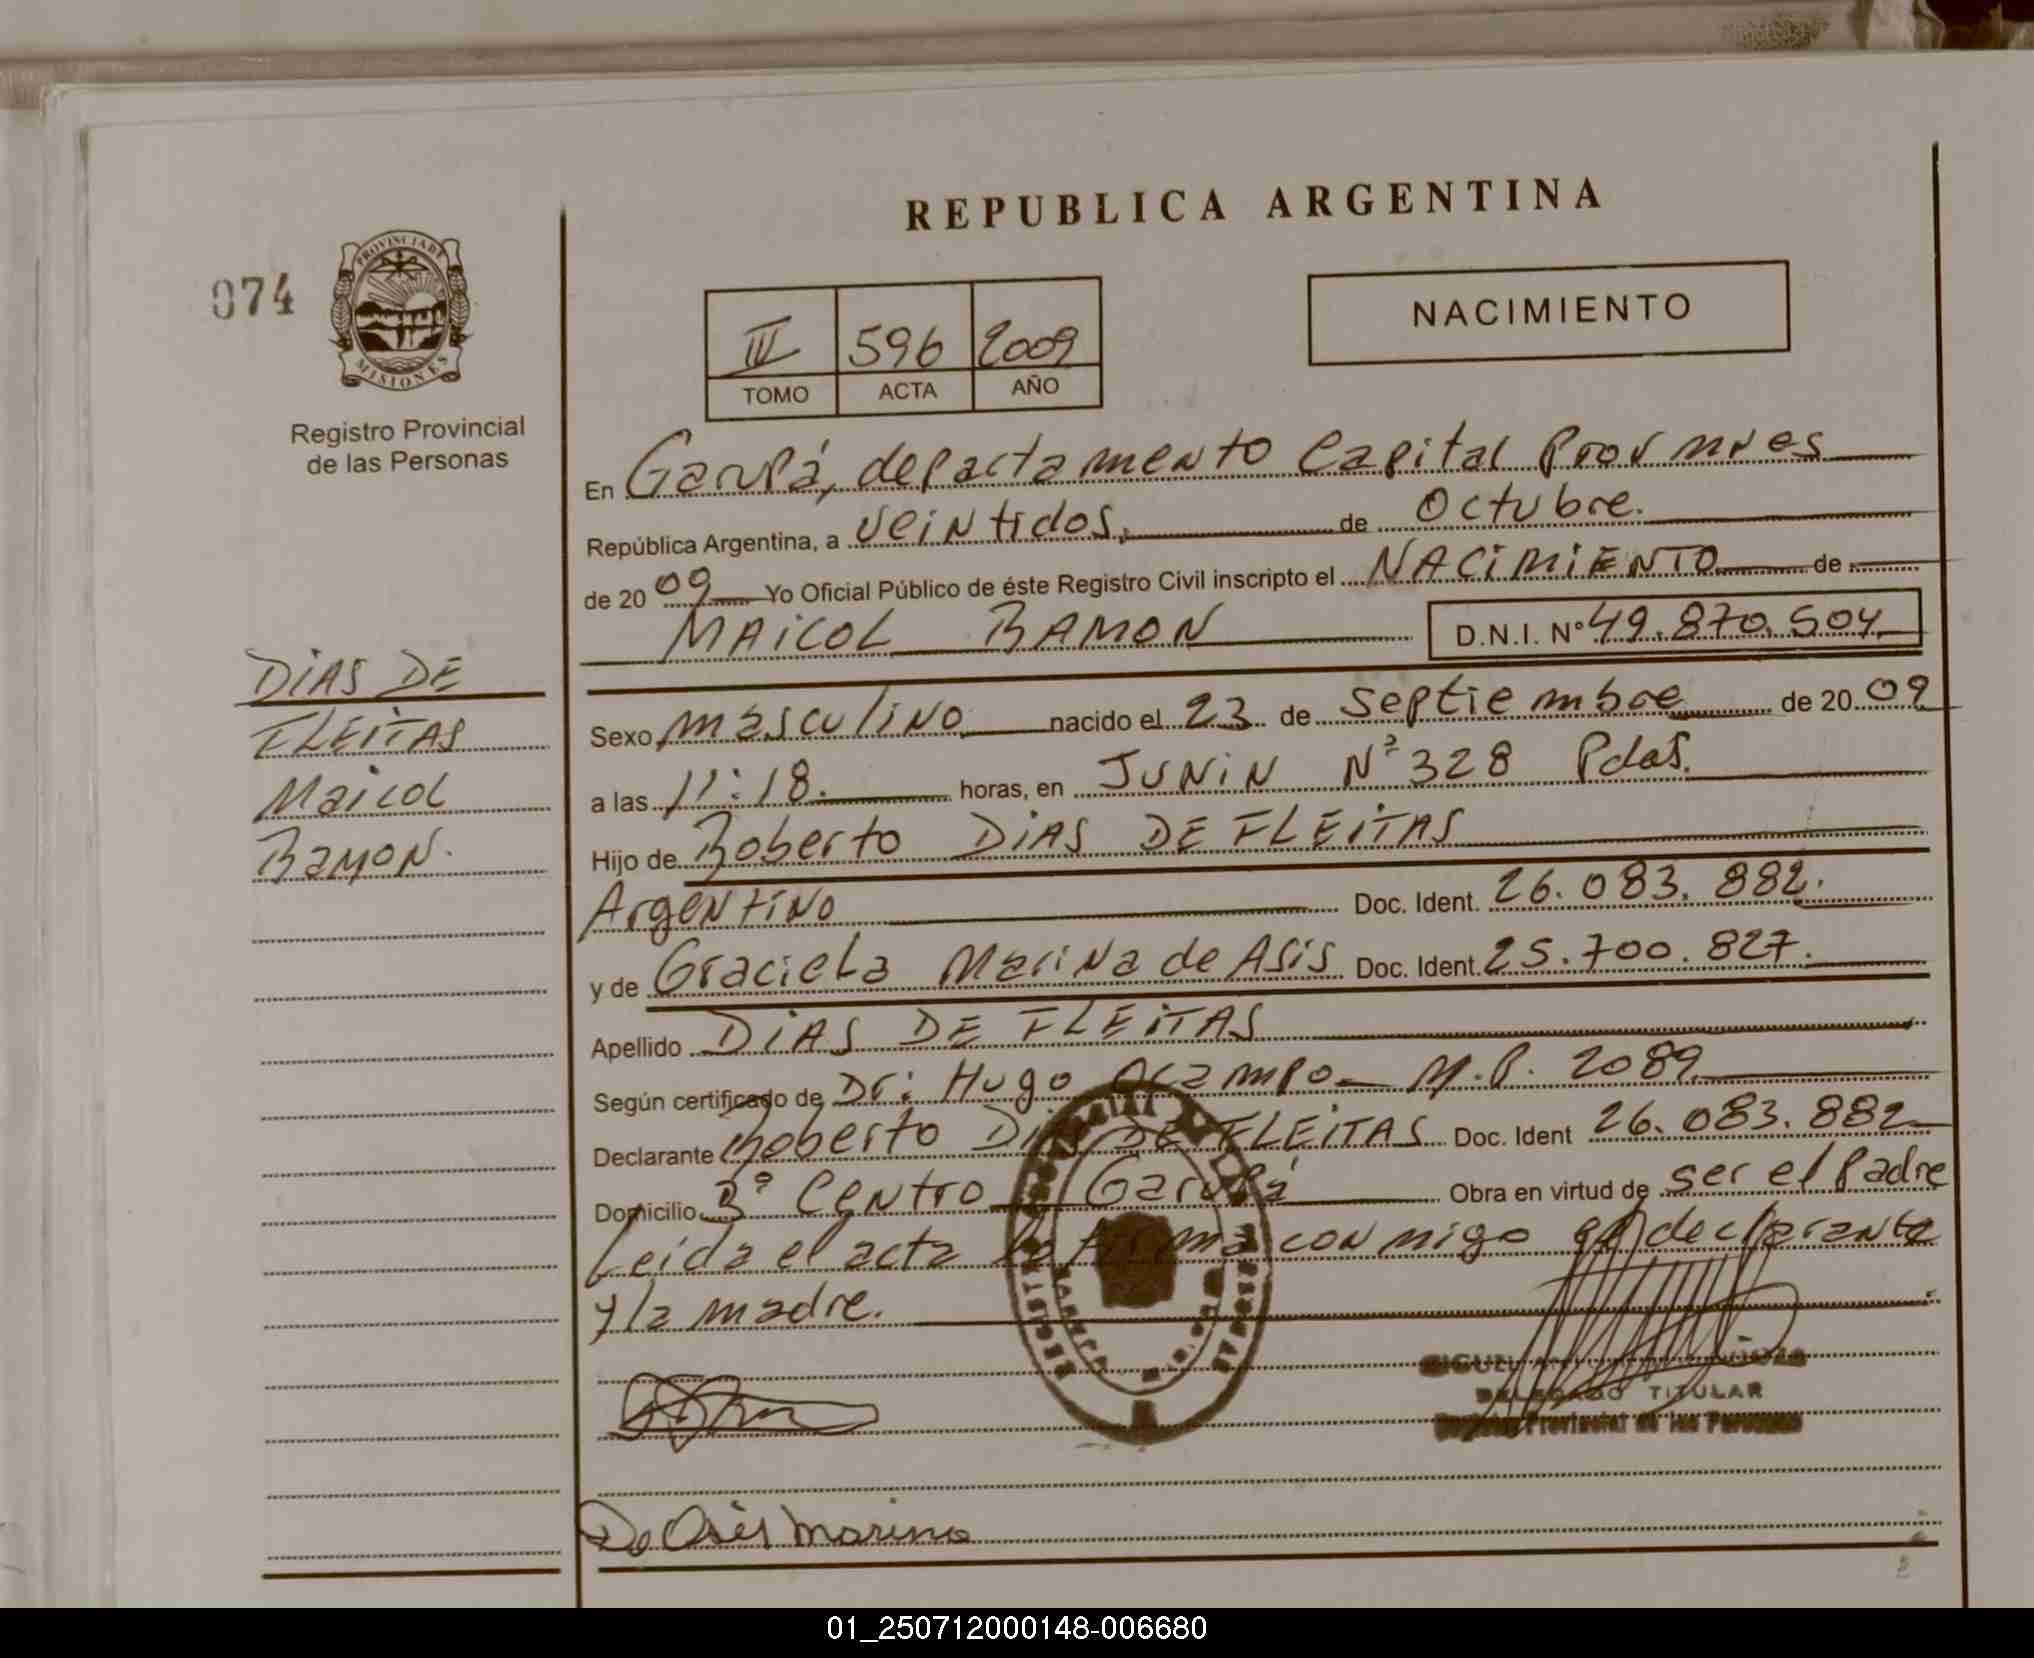 REPUBLICA ARGENTINA
074
PROVINCIA DE
MISIONES
Registro Provincial
de las Personas
NACIMIENTO
III 596 2009
TOMO ACTA AÑO
En Garupá, departamento Capital Prov Mnes
República Argentina, a veintidos, de Octubre.
de 2009 Yo Oficial Público de éste Registro Civil inscripto el NACIMIENTO de
MAICOL RAMON D.N.I. Nº 49.870.504
DIAS DE
FLEITAS
Maicol
Ramon.
Sexo masculino nacido el 23 de septiembre de 2009
a las 11:18. horas, en JUNIN Nº 328 Pdas.
Hijo de Roberto DIAS DE FLEITAS
Argentino Doc. Ident. 26.083.882.
y de Graciela Marina de Asis Doc. Ident. 25.700.827.
Apellido DIAS DE FLEITAS
Según certificado de Dr: Hugo Ocampo M.P. 2089
Declarante Roberto DIAS DE FLEITAS Doc. Ident 26.083.882
Domicilio Bº Centro Garupá Obra en virtud de ser el Padre
Leida el acta la firma conmigo el declarante
y la madre.
DELEGADO TITULAR
Registro Provincial de las Personas
De Asis Marina
01_250712000148-006680